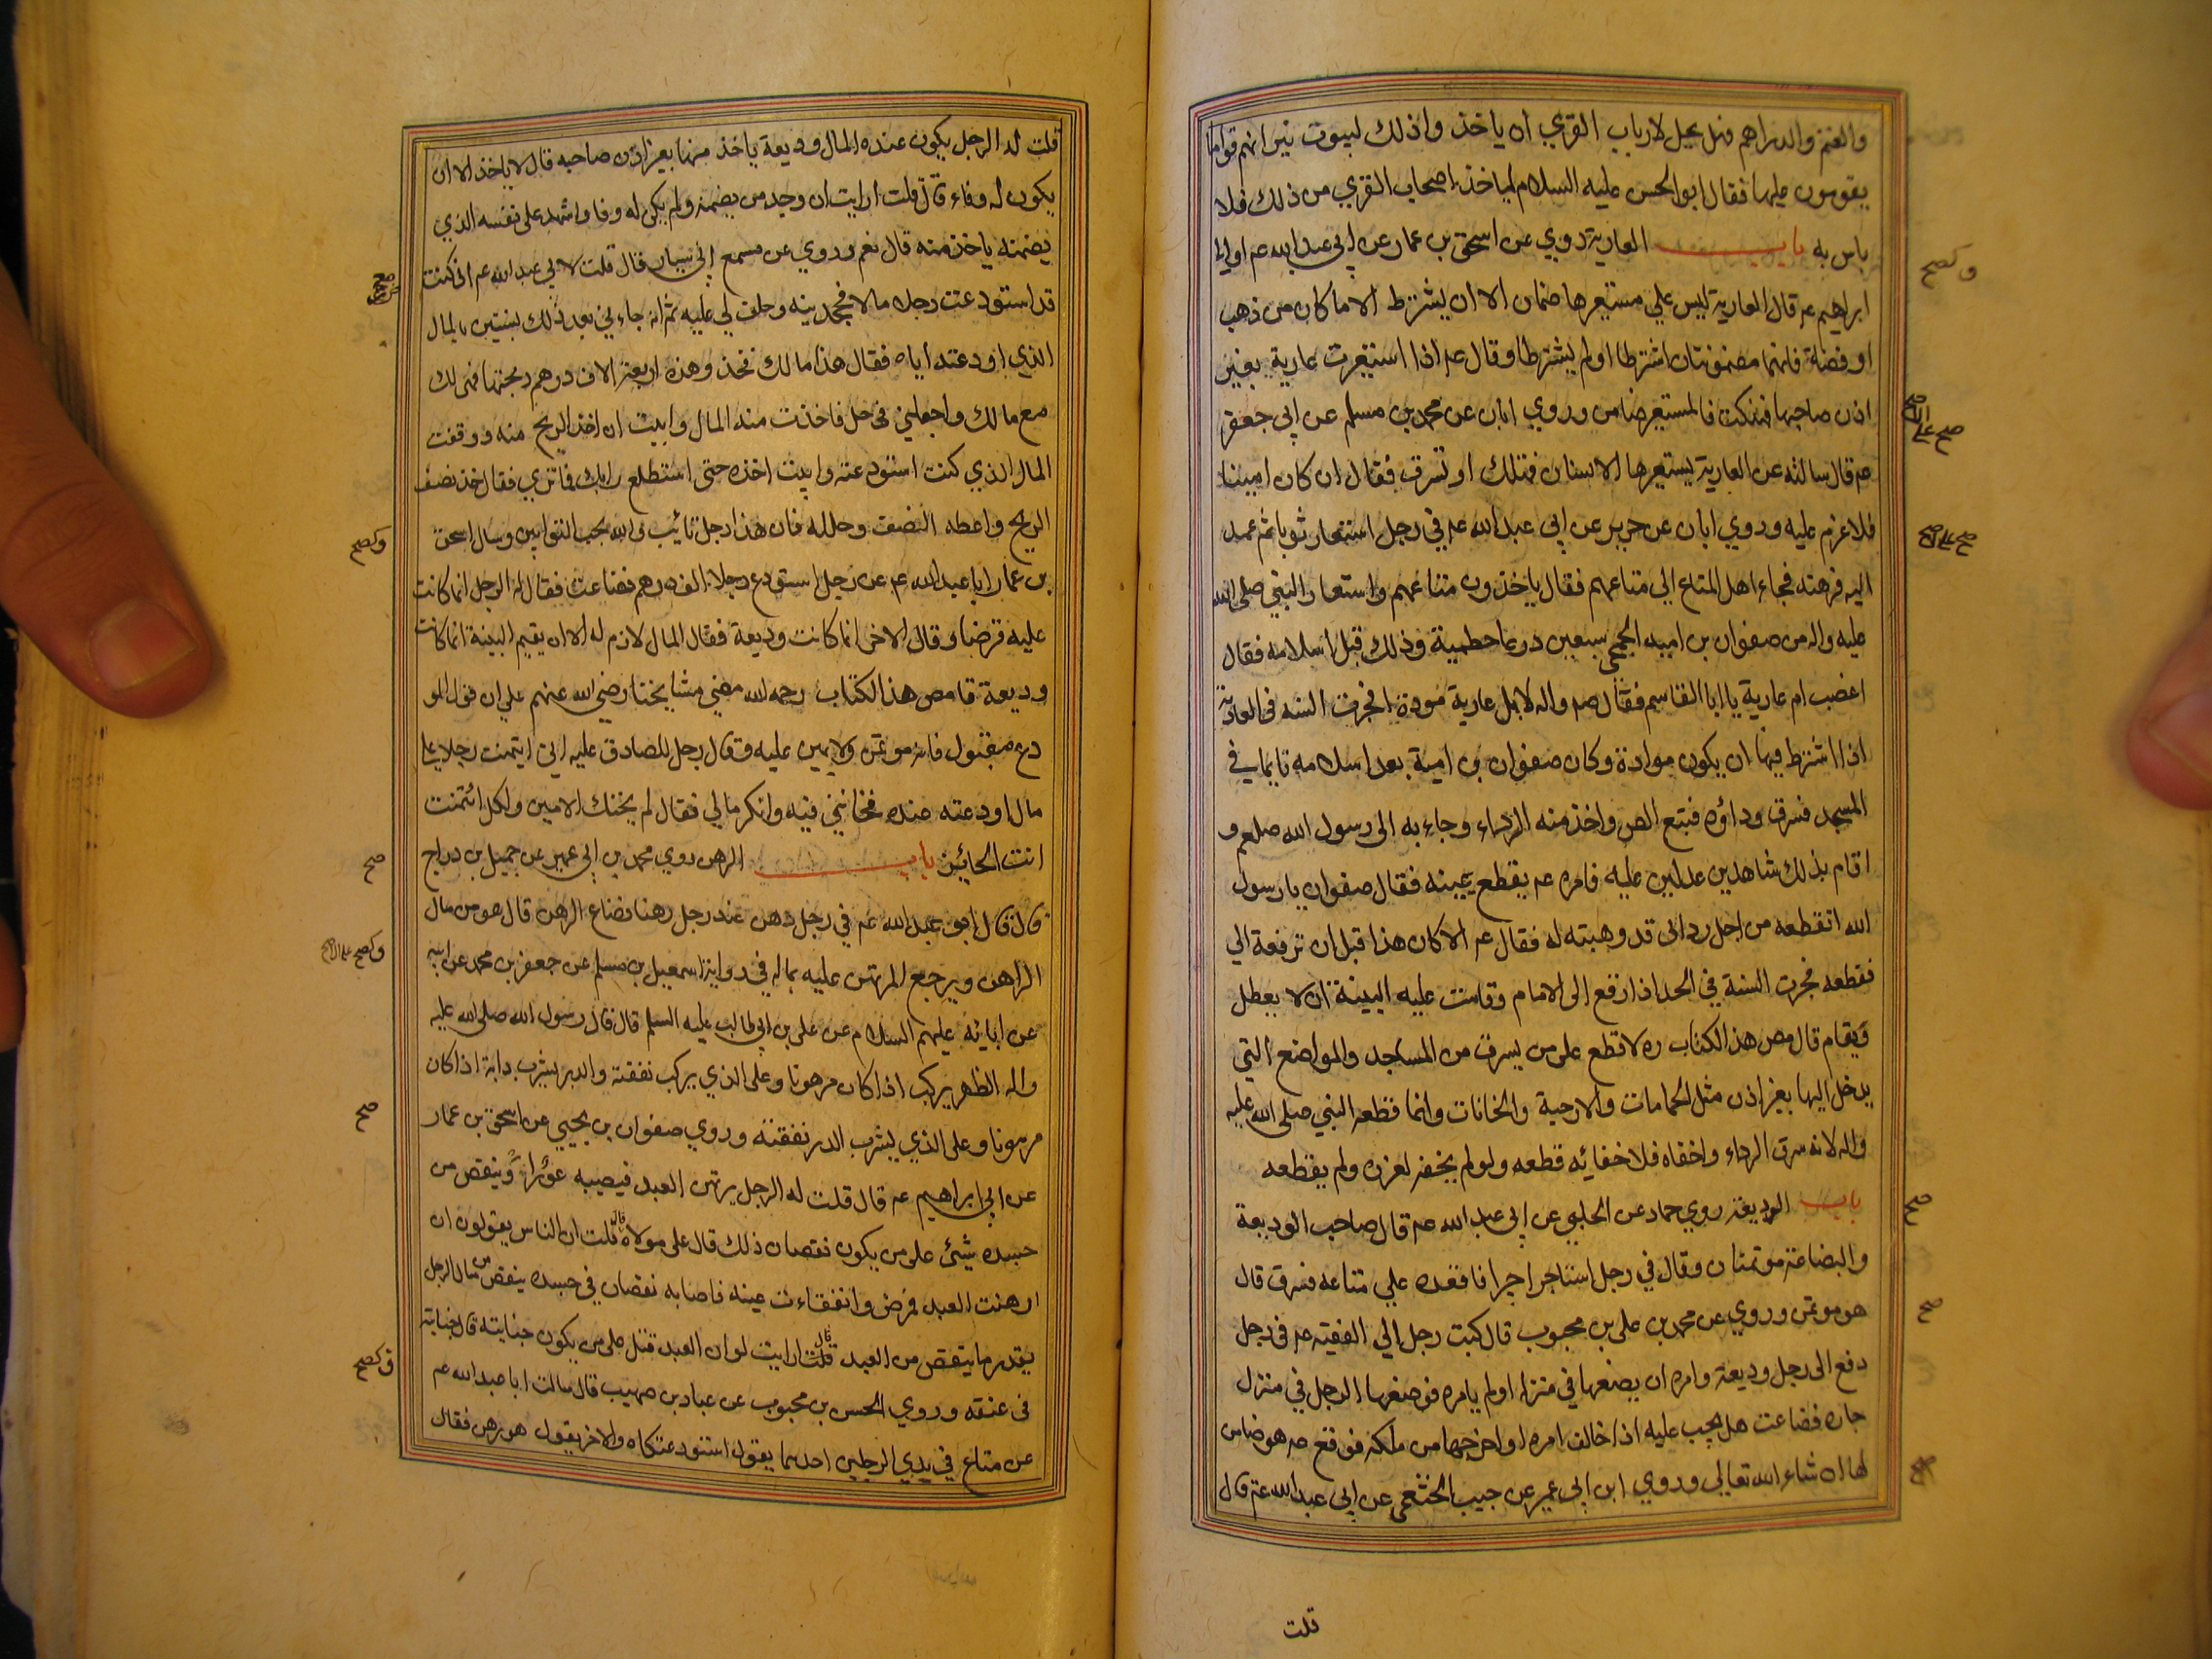 والغنم والدراهم فهل يحل لارباب القري ان ياخذوا ذلك لبيوت نيرانهم قواما
يقومون عليها فقال ابو الحسن عليه السلام لياخذ اصحاب القري من ذلك فلا
باس به باب العارية روي عن اسحق بن عمار عن ابي عبد الله عم او ابي
ابراهيم عم قال العارية ليس علي مستعيرها ضمان الا ان يشترط الا ما كان من ذهب
او فضة فانهما مضمونتان اشترطا او لم يشترطا وقال عم اذا استعيرت عارية بغير
اذن صاحبها فهلكت فالمستعير ضامن وروي ابان عن محمد بن مسلم عن ابي جعفر
عم قال سالته عن العارية يستعيرها الانسان فتهلك او تسرق فقال ان كان امينا
فلا غرم عليه وروي ابان عن حريز عن ابي عبد الله عم في رجل استعار ثوبا ثم عمد
اليه فرهنه فجاء اهل المتاع الي متاعهم فقال ياخذون متاعهم واستعار النبي صلى الله
عليه واله من صفوان بن اميه الجمحي سبعين درعا حطمية وذلك قبل اسلامه فقال
اغصب ام عارية يا ابا القاسم فقال صم واله لا بل عارية موداة فجرت السنه في العارية
اذا اشترط فيها ان يكون موادة وكان صفوان بن امية بعد اسلامه نايما في
المسجد فسرق رداؤه فتبع اللص واخذ منه الرداء وجاء به الى رسول الله صلعم و
اقام بذلك شاهدين عدلين عليه فامره عم يقطع يمينه فقال صفوان يا رسول
الله اتقطعه من اجل رداى قد وهبته له فقال عم الا كان هذا قبل ان ترفعة الي
فقطعه فجرت السنة في الحد اذا رفع الى الامام وقامت عليه البينة ان لا يعطل
ويقام قال مص هذ الكتاب ره لا قطع على من يسرق من المساجد والمواضع التي
يدخل اليها بغير اذن مثل الحمامات والارحية والخانات وانما قطعه النبي صلى الله عليه
واله لانه سرق الرداء واخفاه فلاخفائه قطعه ولو لم يخفه لعزره ولم يقطعه
باب الوديعة روي حماد عن الحلبي عن ابي عبد الله عم قال صاحب الوديعة
والبضاعة موتمنان وقال في رجل استاجر اجيرا فاقعده علي متاعه فسرق قال
هو موتمن وروي عن محمد بن علي بن محبوب قال كتب رجل الي الفقيه عم في رجل
دفع الى رجل وديعة وامره ان يضعها في منزله او لم يامره فوضعها الرجل في منزل
جاره فضاعت هل يجب عليه اذا خالف امره او اخرجها من ملكه فوقع عم هو ضامن
لها ان شاء الله تعالي وروي ابن ابي عمير عن حبيب الخثعمي عن ابي عبد الله عم قال
قلت
وكصح
صح
صح
قلت له الرجل يكون عنده المال وديعة ياخذ منها بغير اذن صاحبه قال لا ياخذ الا ان
يكون له وفاء قال قلت ارايت ان وجد من يضمنه ولم يكن له وفا واشهد على نفسه الذي
يضمنه ياخذ منه قال نعم وروي عن مسمع ابي سيار قال قلت لابي عبد الله عم اني كنت
قد استودعت رجلا مالا فجحدينه وحلف لي عليه ثم انه جاءني بعد ذلك بسنتين بالمال
الذي اودعته اياه فقال هذا مالك فخذه وهذه اربعة الاف درهم ربحتها فهي لك
مع مالك واجعلني في حل فاخذت منه المال وابيت ان اخذ الربح منه ووقفت
المال الذي كنت استودعته وابيت اخذه حتى استطلع رايك فما تري فقال خذ نصف
الربح واعطه النصف وحلله فان هذا رجل تائب والله يحب التوابين وسال اسحق
بن عمار ابا عبد الله عم عن رجل استودع رجلا الف درهم فضاعت فقال له الرجل انما كانت
عليه قرضا وقال الاخر انما كانت وديعة فقال المال لازم له الا ان يقيم البينة انما كانت
وديعة قا مص هذا الكتاب رحمه الله مضي مشايخنا رضي الله عنهم علي ان قول المو
دع مقبول فانه موتمن ولا يمين عليه وقال رجل للصادق عليه اني ايتمنت رجلا على
مال اودعته عنده فخانني فيه وانكر مالي فقال لم يخنك الامين ولكن ائتمنت
انت الخائن باب الرهن روي محمد بن ابي عمير عن جميل بن دراج
قال قال ابو عبد الله عم في رجل رهن عند رجل رهنا فضاع الرهن قال هو من مال
الراهن ويرجع المرتهن عليه بماله في رواية اسمعيل بن مسلم عن جعفر بن محمد عن ابيه
عن ابائه عليهم السلام عن علي بن ابي طالب عليه السلم قال قال رسول الله صلى الله عليه
واله الظهر يركب اذا كان مرهونا وعلى الذي يركب نفقته والدر يشرب دابة اذا كان
مرهونا وعلى الذي يشرب الدر نفقته وروي صفوان بن يحيي عن اسحق بن عمار
عن ابي ابراهيم عم قال قلت له الرجل يرتهن العبد فيصيبه عورا وينقص من
جسده شيئ على من يكون نقصان ذلك قال على مولاه قال قلت ان الناس يقولون ان
ارهنت العبد فمرض وانفقاءت عينه فاصابه نقصان في جسده ينقص من مال الرجل
يقدر ما ينقص من العبد قال قلت ارايت لو ان العبد قتل على من يكون جنايته قال جنايته
في عنقه وروي الحسن بن محبوب عن عباد بن صهيب قال سالت ابا عبد الله عم
عن متاع في يدي الرجلين احدهما يقول استودعتكاه والاخر يقول هو رهن فقال
وكصح
صح
صح